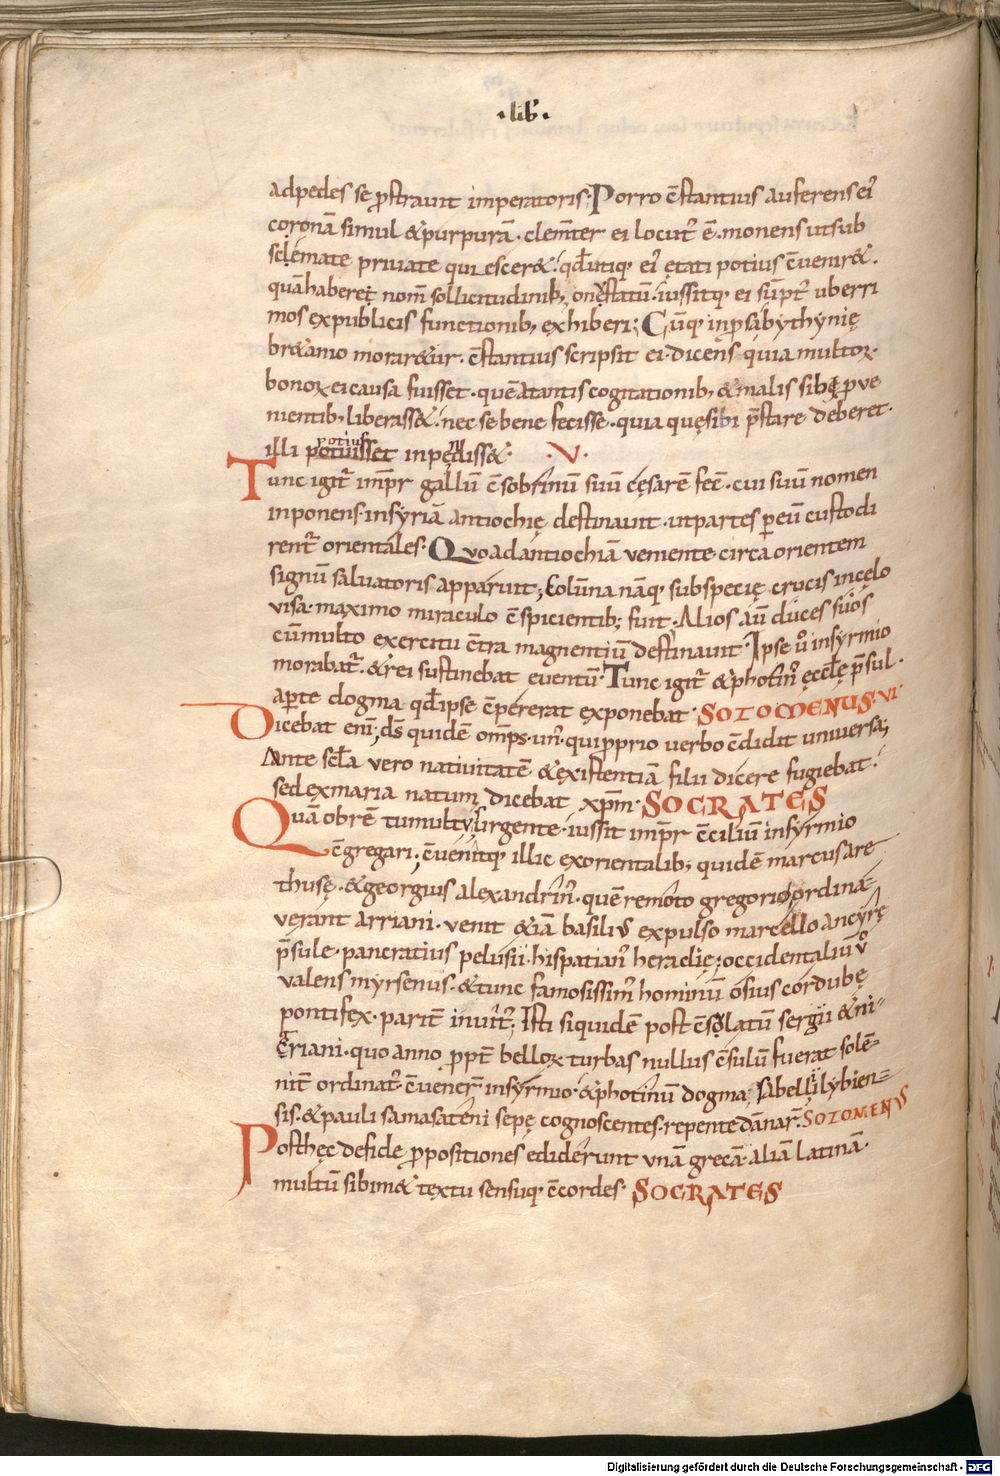 ·lib̄·
adpedes se ꝓstrauit imperatoris. Porro c̄stantius auferens ei᷒
coronā simul &purpurā. clem̄ter ei locut᷒ ē. monens utsub
sclemate priuate quiescer&. qđutiqꝫ ei᷒ ętati potius c̄uenir&.
quāhaberet nom̄ sollicitudinibꝫ onęstatū. iussitqꝫ ei sūpt᷒ uberri
mos expublicis functionibꝫ exhiberi; Cūqꝫ inpsabythynię
br&amo morar&ur. c̄stantius scripsit ei. dicens quia multoꝝ
bonoꝝ eicausa fuisset. quēatantis cogitationibꝫ &malis sibi ꝓue
nientibꝫ liberass&. nec sebene fecisse. quia quęsibi p̄stare deberet.
illi potius potuisset inpendiss&. ·V·
Tunc igit᷒ imp̄r gallū c̄sobrinū suū cęsarē fec̄. cui suū nomen
inponens. insyriā antiochię destinauit. utpartes ꝑeū custodi
rent᷒ orientales. Quoadantiochiā veniente. circa orientem
signū saluatoris apparuit; Colūna nāqꝫ subspecię crucis incęlo
visa. maximo miraculo c̄spicientibꝫ fuit. Alios aū duces suos
cūmulto exercitu c̄tra magnentiū destinauit. Ipse ů insyrmio
morabat᷒. &rei sustinebat euentū. Tunc igit᷒ &photin᷒ ęccłę p̄sul.
aperte dogma qđipse c̄pererat exponebat. SOZOMENUS. VI.
Dicebat eni; d̄s quidē omp̄s. un᷒. quiꝓprio verbo c̄didit uniuersa;
Ante scła vero natiuitatē &existentiā filii dicere fugiebat.
sed exmaria natum dicebat xp̄m. SOCRATES
Quā obrē tumultu surgente. iussit imp̄r c̄ciliū insyrmio
c̄gregari; c̄uenitqꝫ illic exorientalibꝫ quidē marcus are
thusę. &georgius alexandrin᷒. quē remoto gregorio ordina-
verant arriani. venit &iā basilius expulso marcello ancyrę
p̄sule. pancratius pelusii. hispatian᷒ heraclię; occidentaliū ů
valens myrsenus. &tunc famosissim᷒ hominū osius cordubę
pontifex. parit̄ inuit᷒; Isti siquidē post c̄solatū sergii &ni-
griani. quo anno ꝓpt̄ belloꝝ turbas nullus c̄sulū fuerat solē-
nit̄ ordinat᷒. c̄uener̄ insyrmio. &photinū dogma sabellii lybien-
sis. &pauli samasateni sepę cognoscentes. repente dānar̄. SOZOMENUS
Posthęc defide ꝓpositiones ediderunt vnā grecā. aliā latinā.
multū sibim& textu sensuqꝫ c̄cordes. SOCRATES
Digitalisierung gefördert durch die Deutsche Forschungsgemeinschaft - DFG